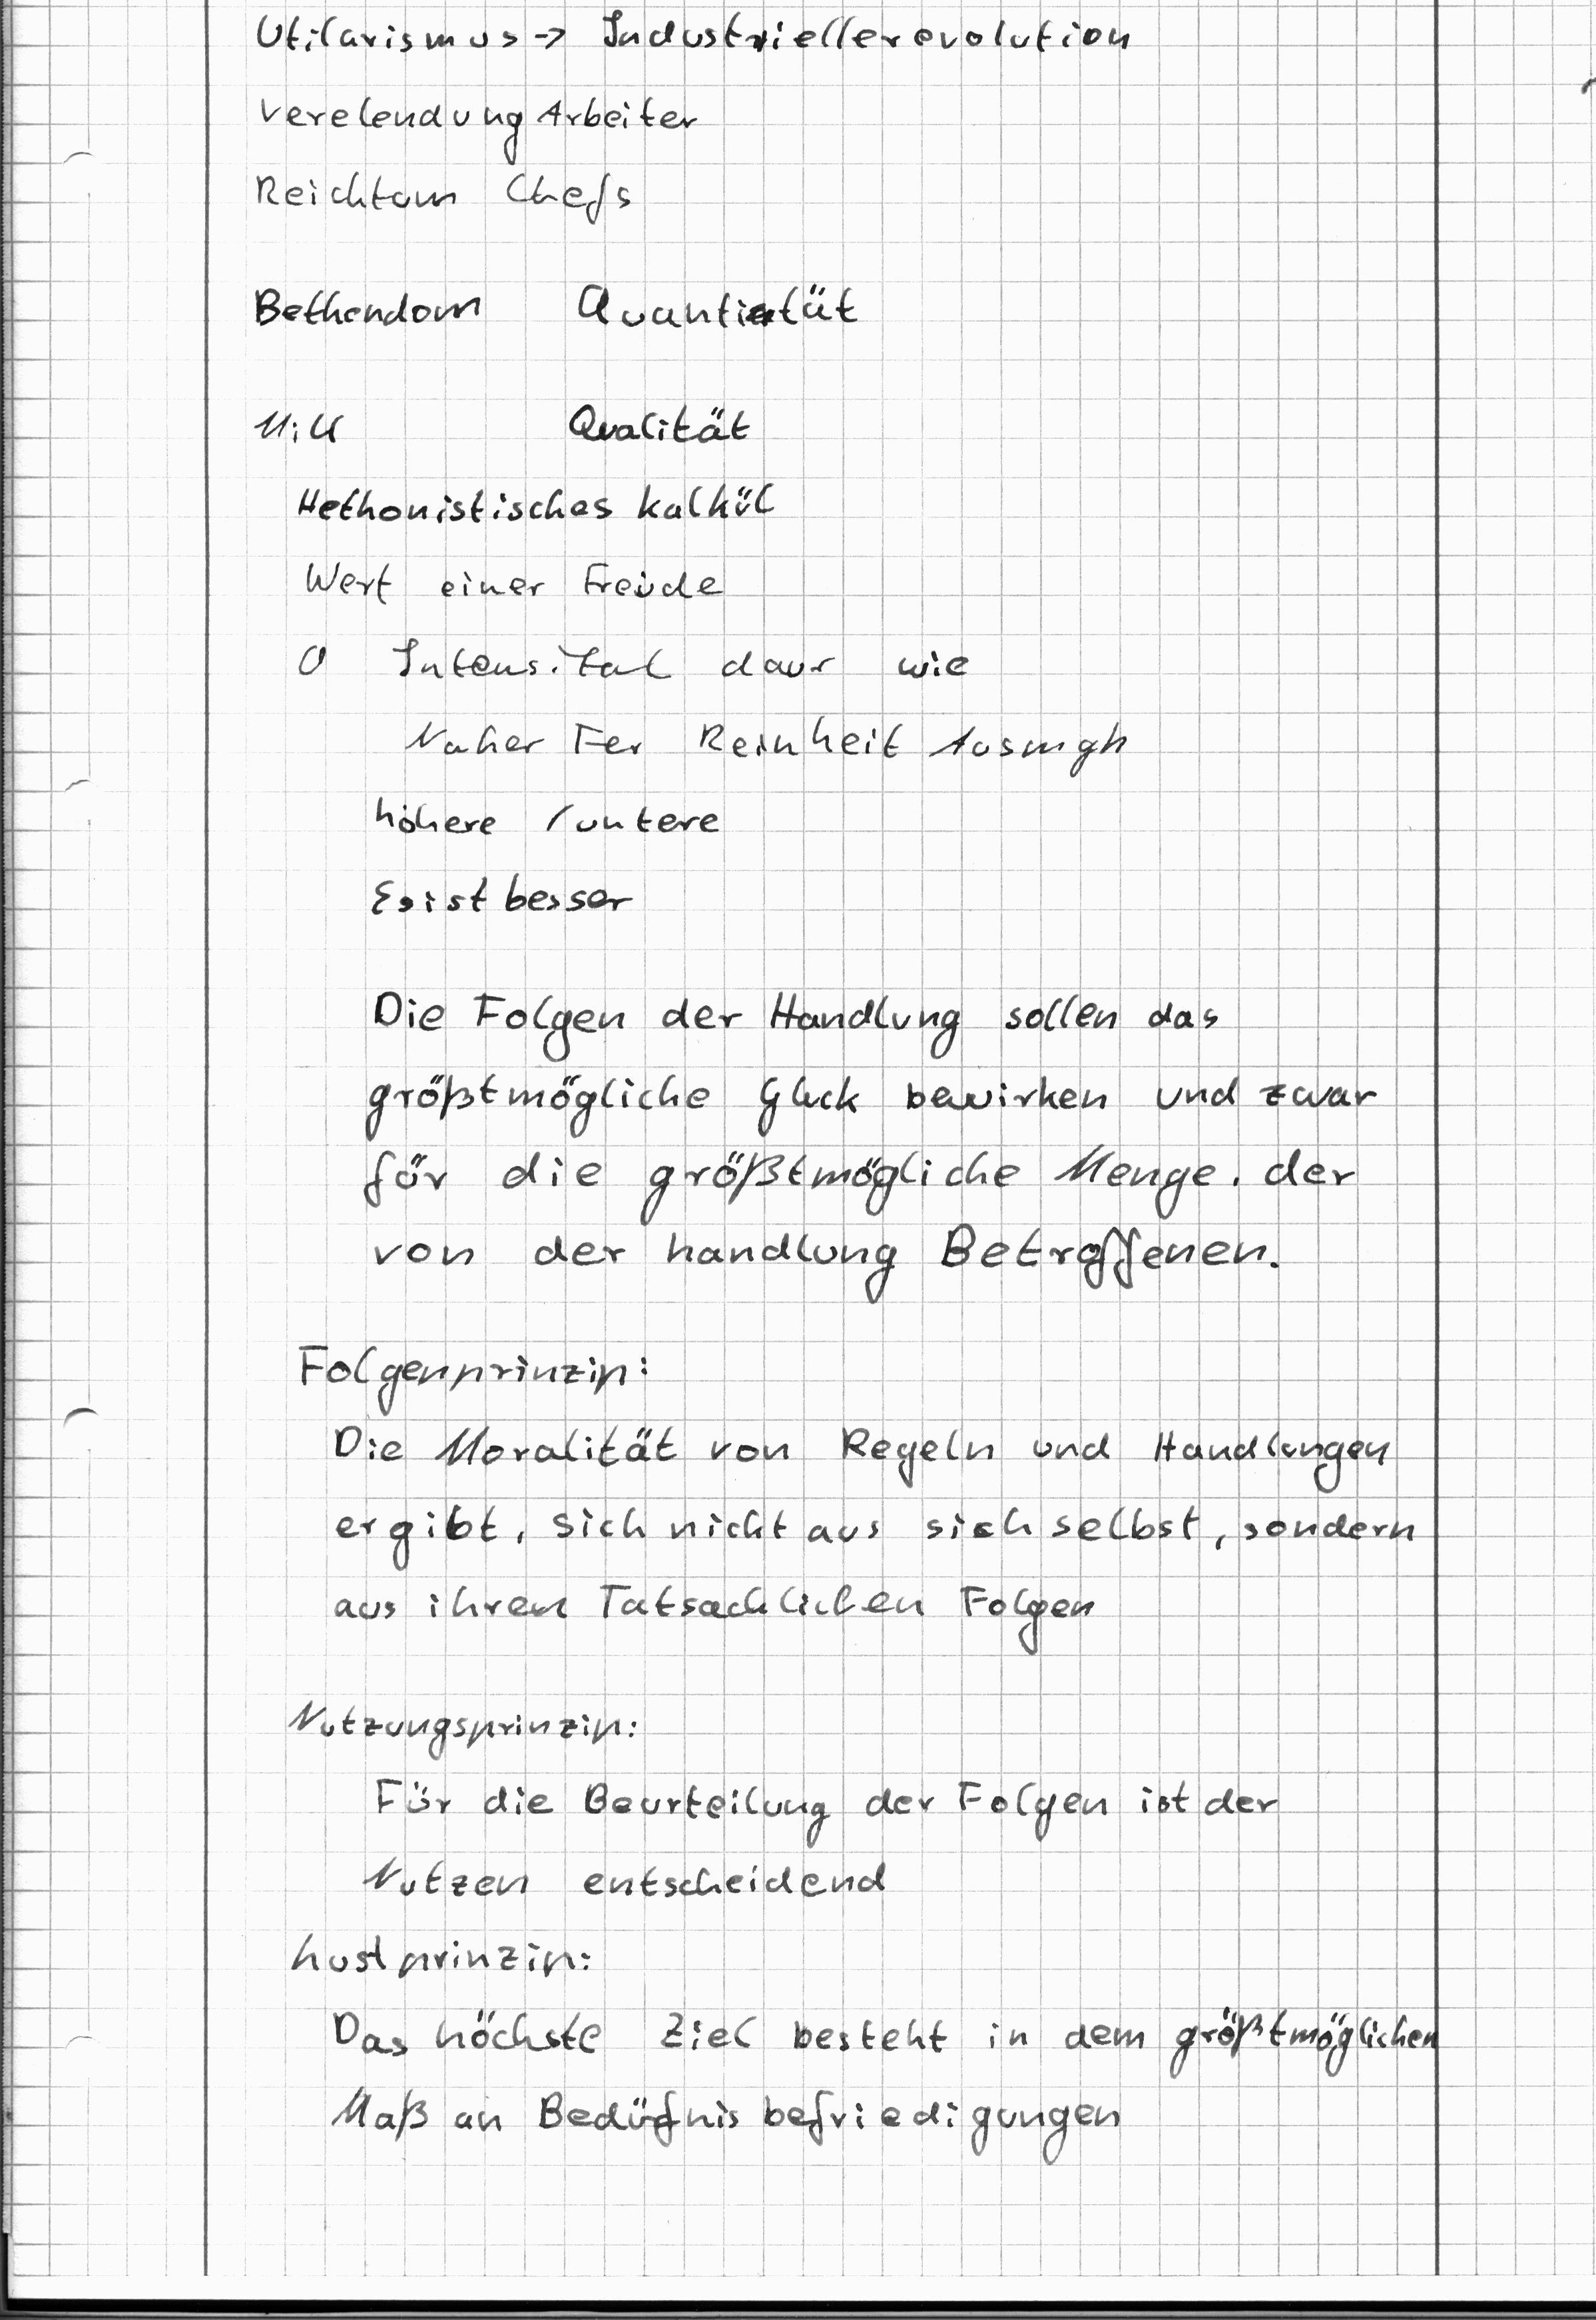 Utilarismus -> Industriellerevolution
Verelendung Arbeiter
Reichtum Chefs
Bethendom Quantität
Mill Qualität
Hethonistisches kalkül
Wert einer Freude
O Intensität daur wie
Naher Fer Reinheit
höhere / untere
Es ist besser
Die Folgen der Handlung sollen das
größtmögliche Gluck bewirken und zwar
für die größtmögliche Menge. der
von der handlung Betroffenen.
Folgenprinzip:
Die Moralität von Regeln und Handlungen
ergibt, sich nicht aus sich selbst, sondern
aus ihren Tatsachlichen Folgen
Nutzungsprinzip:
Für die Beurteilung der Folgen ist der
Nutzen entscheidend
Lustprinzip:
Das höchste Ziel besteht in dem größtmöglichen
Maß an Bedüfnis befriedigungen